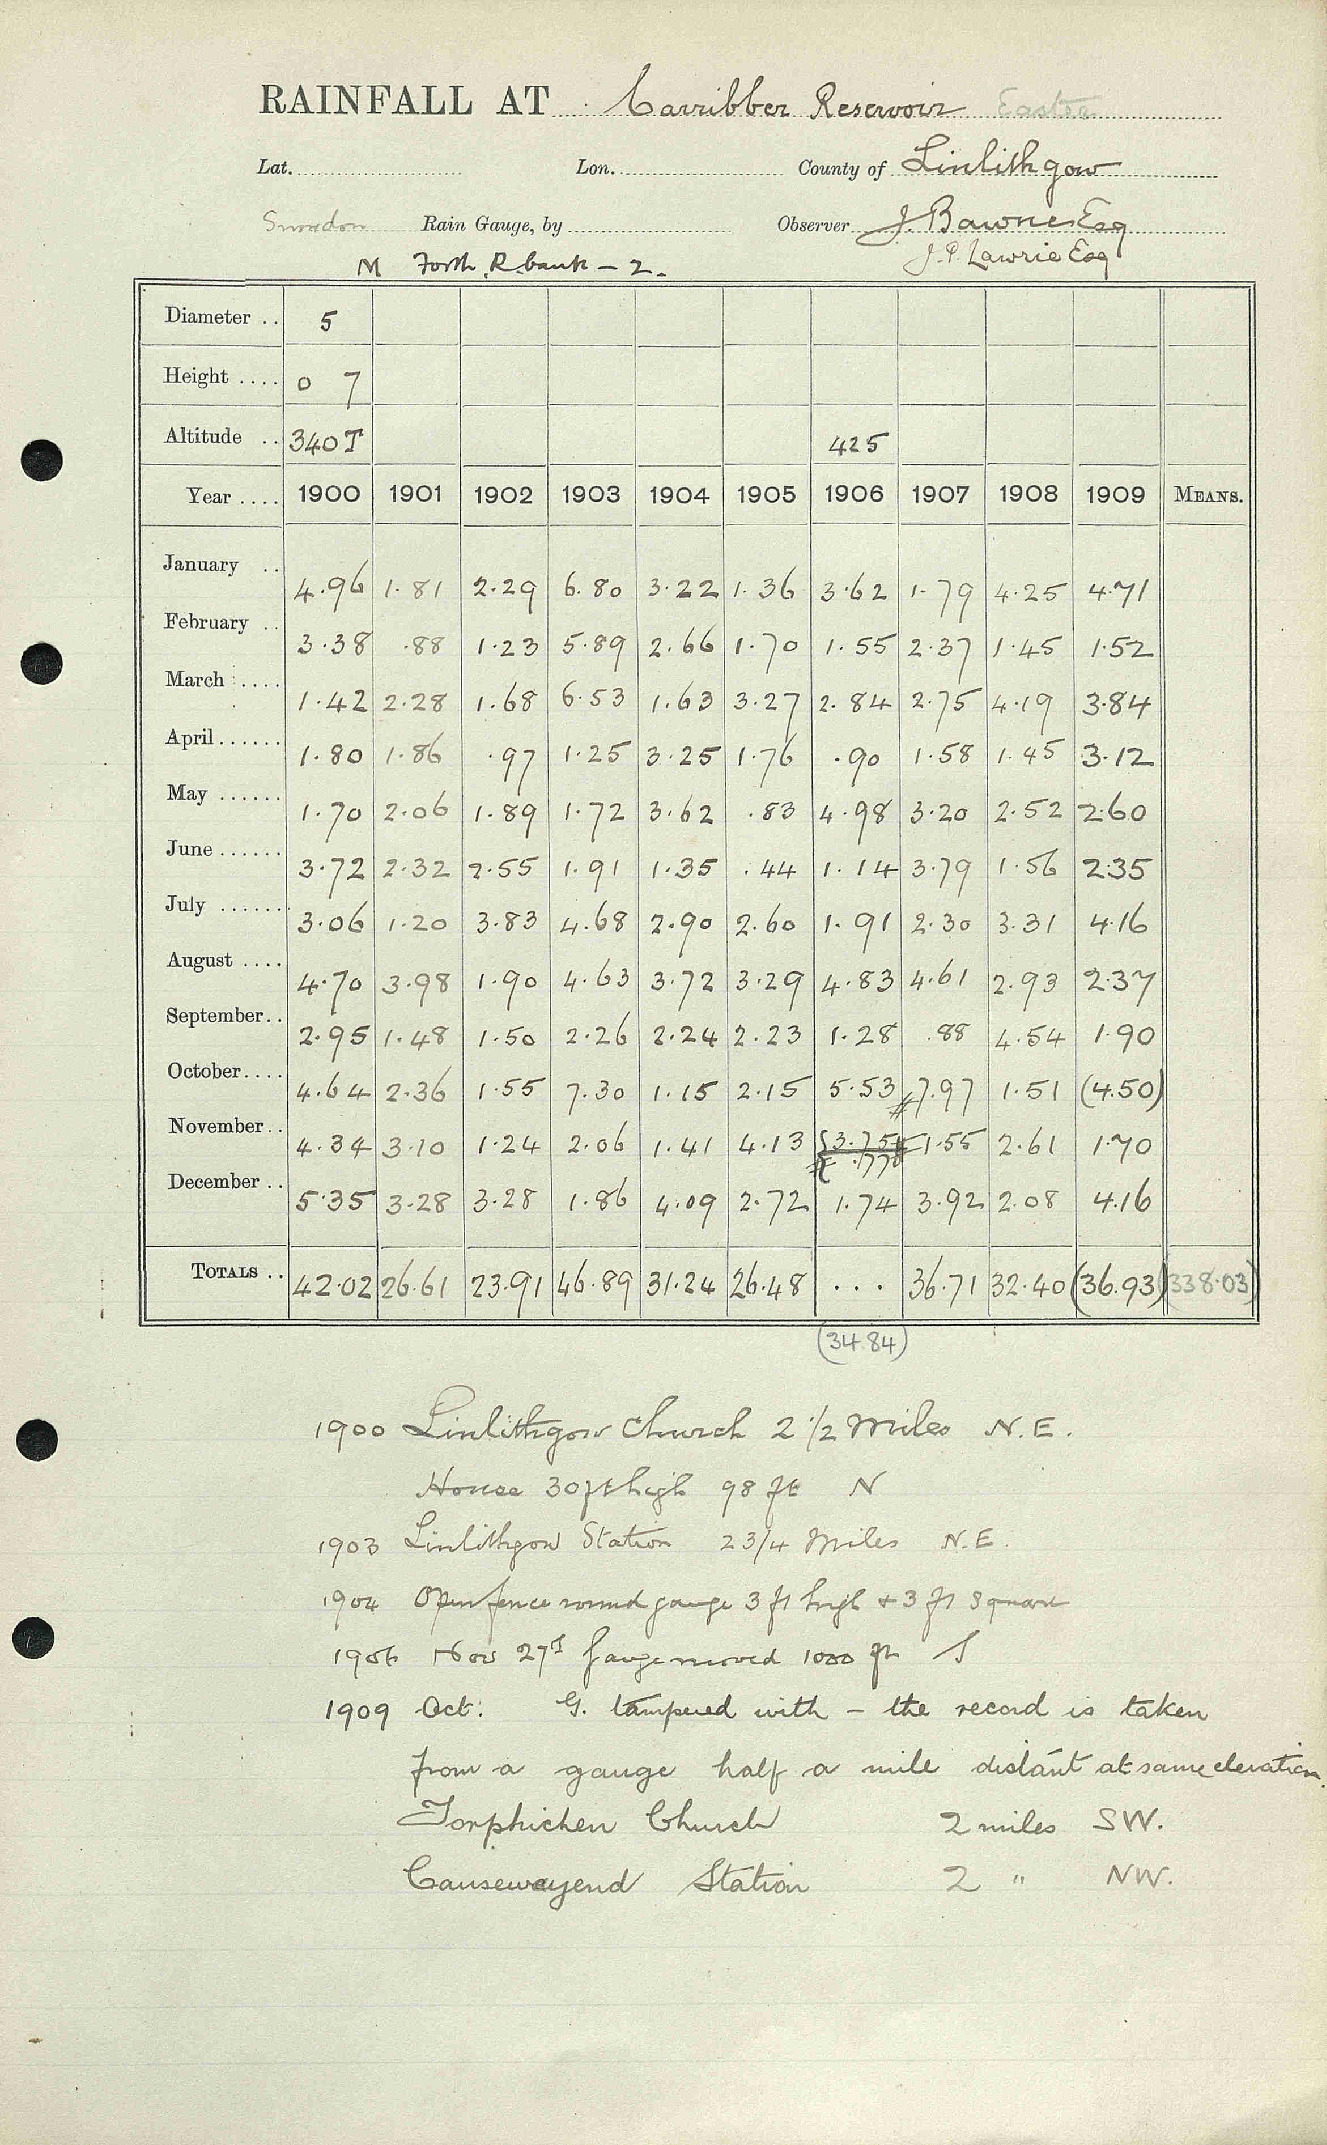 RAINFALL AT Carribber Reservoir Easter
Lat. Lon. County of Linlithgow
Snowdon Rain Gauge, by Observer J. Bawne Esq
M Forth, R. bank – 2. J. P. Lawrie Esq
Diameter .. 5
Height .... 0 7
Altitude .. 340T 425
Year .... 1900 1901 1902 1903 1904 1905 1906 1907 1908 1909 MEANS.
January .. 4.96 1.81 2.29 6.80 3.22 1.36 3.62 1.79 4.25 4.71
February .. 3.38 .88 1.23 5.89 2.66 1.70 1.55 2.37 1.45 1.52
March .... 1.42 2.28 1.68 6.53 1.63 3.27 2.84 2.75 4.19 3.84
April ...... 1.80 1.86 .97 1.25 3.25 1.76 .90 1.58 1.45 3.12
May ...... 1.70 2.06 1.89 1.72 3.62 .83 4.98 3.20 2.52 2.60
June ...... 3.72 2.32 2.55 1.91 1.35 .44 1.14 3.79 1.56 2.35
July ...... 3.06 1.20 3.83 4.68 2.90 2.60 1.91 2.30 3.31 4.16
August .... 4.70 3.98 1.90 4.63 3.72 3.29 4.83 4.61 2.93 2.37
September .. 2.95 1.48 1.50 2.26 2.24 2.23 1.28 .88 4.54 1.90
October .... 4.64 2.36 1.55 7.30 1.15 2.15 5.53 7.97 1.51 (4.50)
November .. 4.34 3.10 1.24 2.06 1.41 4.13 3.75 1.55 2.61 1.70
.77
December .. 5.35 3.28 3.28 1.86 4.09 2.72 1.74 3.92 2.08 4.16
TOTALS .. 42.02 26.61 23.91 46.89 31.24 26.48 ... 36.71 32.40 (36.93) (338.03)
(34.84)
1900 Linlithgow Church 2 1/2 Miles N.E.
House 30 ft high 98 ft N
1903 Linlithgow Station 2 3/4 Miles N.E.
1904 Open fence round gauge 3 ft high + 3 ft Square
1906 Nov 27th Gauge moved 1000 ft S
1909 Oct: G. tampered with – the record is taken
from a gauge half a mile distant at same elevation.
Torphichen Church 2 miles SW.
Causewayend Station 2 " NW.